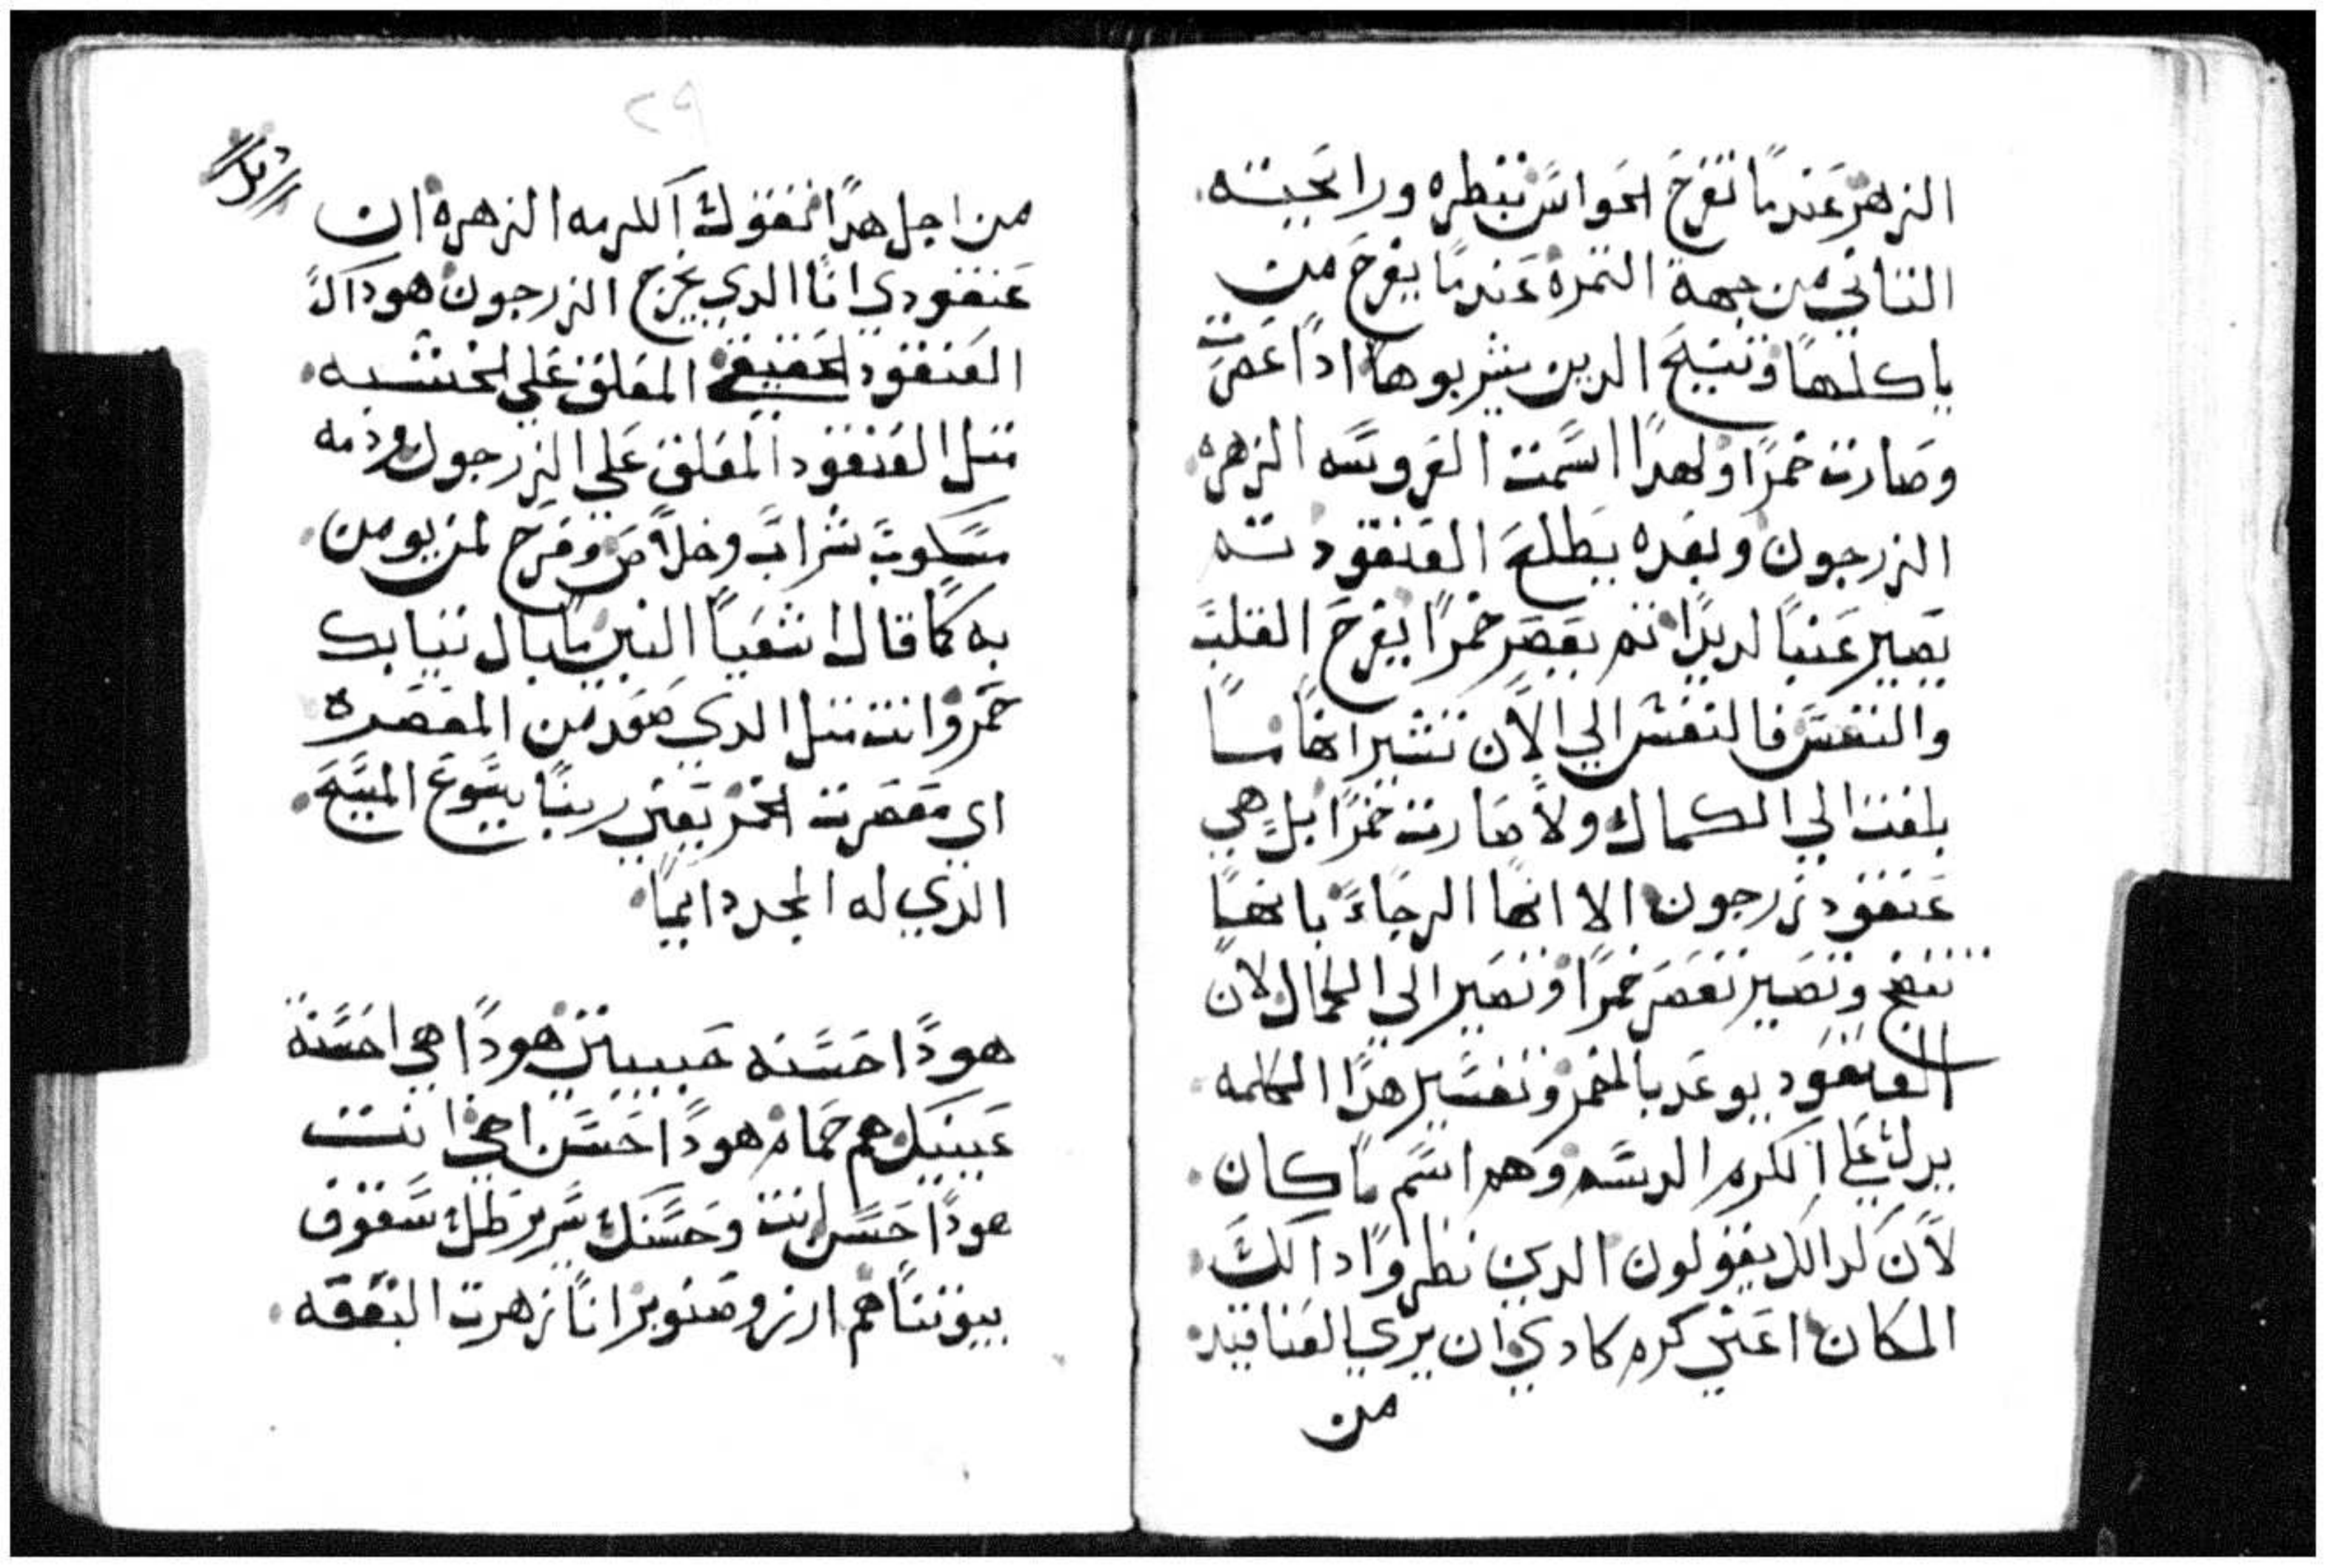 الزهر عندما تفرح الحواس بنظره ورايحيته
التاني من جهة التمره عندما يفرح من
ياكلها وتنيح الدين يشربوها ادا عصرت
وصارت خمرا ولهدا اسمت العروسه الزهره
الزرجون وبعده يطلع العنقود ته
يصير عنبا لديدا تم يعصر خمرا يفرح القلب
والنفس فالنفس الي الان تشير انها ما
بلغت الي الكمال ولا صارت خمرا بل هي
عنقود زرجون الا انها الرجاء بانها
تنضج وتصير تعصر خمرا وتصير الي الكمال لان
العنقود يوعد بالخمر وتفسير هدا الكلمه
يدل علي الكرم الدسم وهو اسم مكان
لان لدالك يقولون الدين نظروا دالك
المكان اعني كرم كادي ان يري العناقيد
من
٢٩
من اجل هدا تقول الكرمه الزهره ان
عنقودي انا الدي يخرج الزرجون هو داك
العنقود الحقيقي المعلق علي الخشبه
متل العنقود المعلق علي الزرجون ودمه
مسكوب شراب وخلاص وفرح لمن يومن
به كما قال اشعيا النبي ما بال تيابك
حمر وانت متل الدي صعد من المعصره
اي معصرت الخمر يعني ربنا يسوع المسيح
الدي له المجد دايما
هودا حسنه حبيبتي هودا هي احسنة
عينيك هم حمام هودا حسن اخي انت
هودا حسن انت وحسنك سرير ظل سقوف
بيوتنا هم ارز وصنوبر انا زهرت البقعه